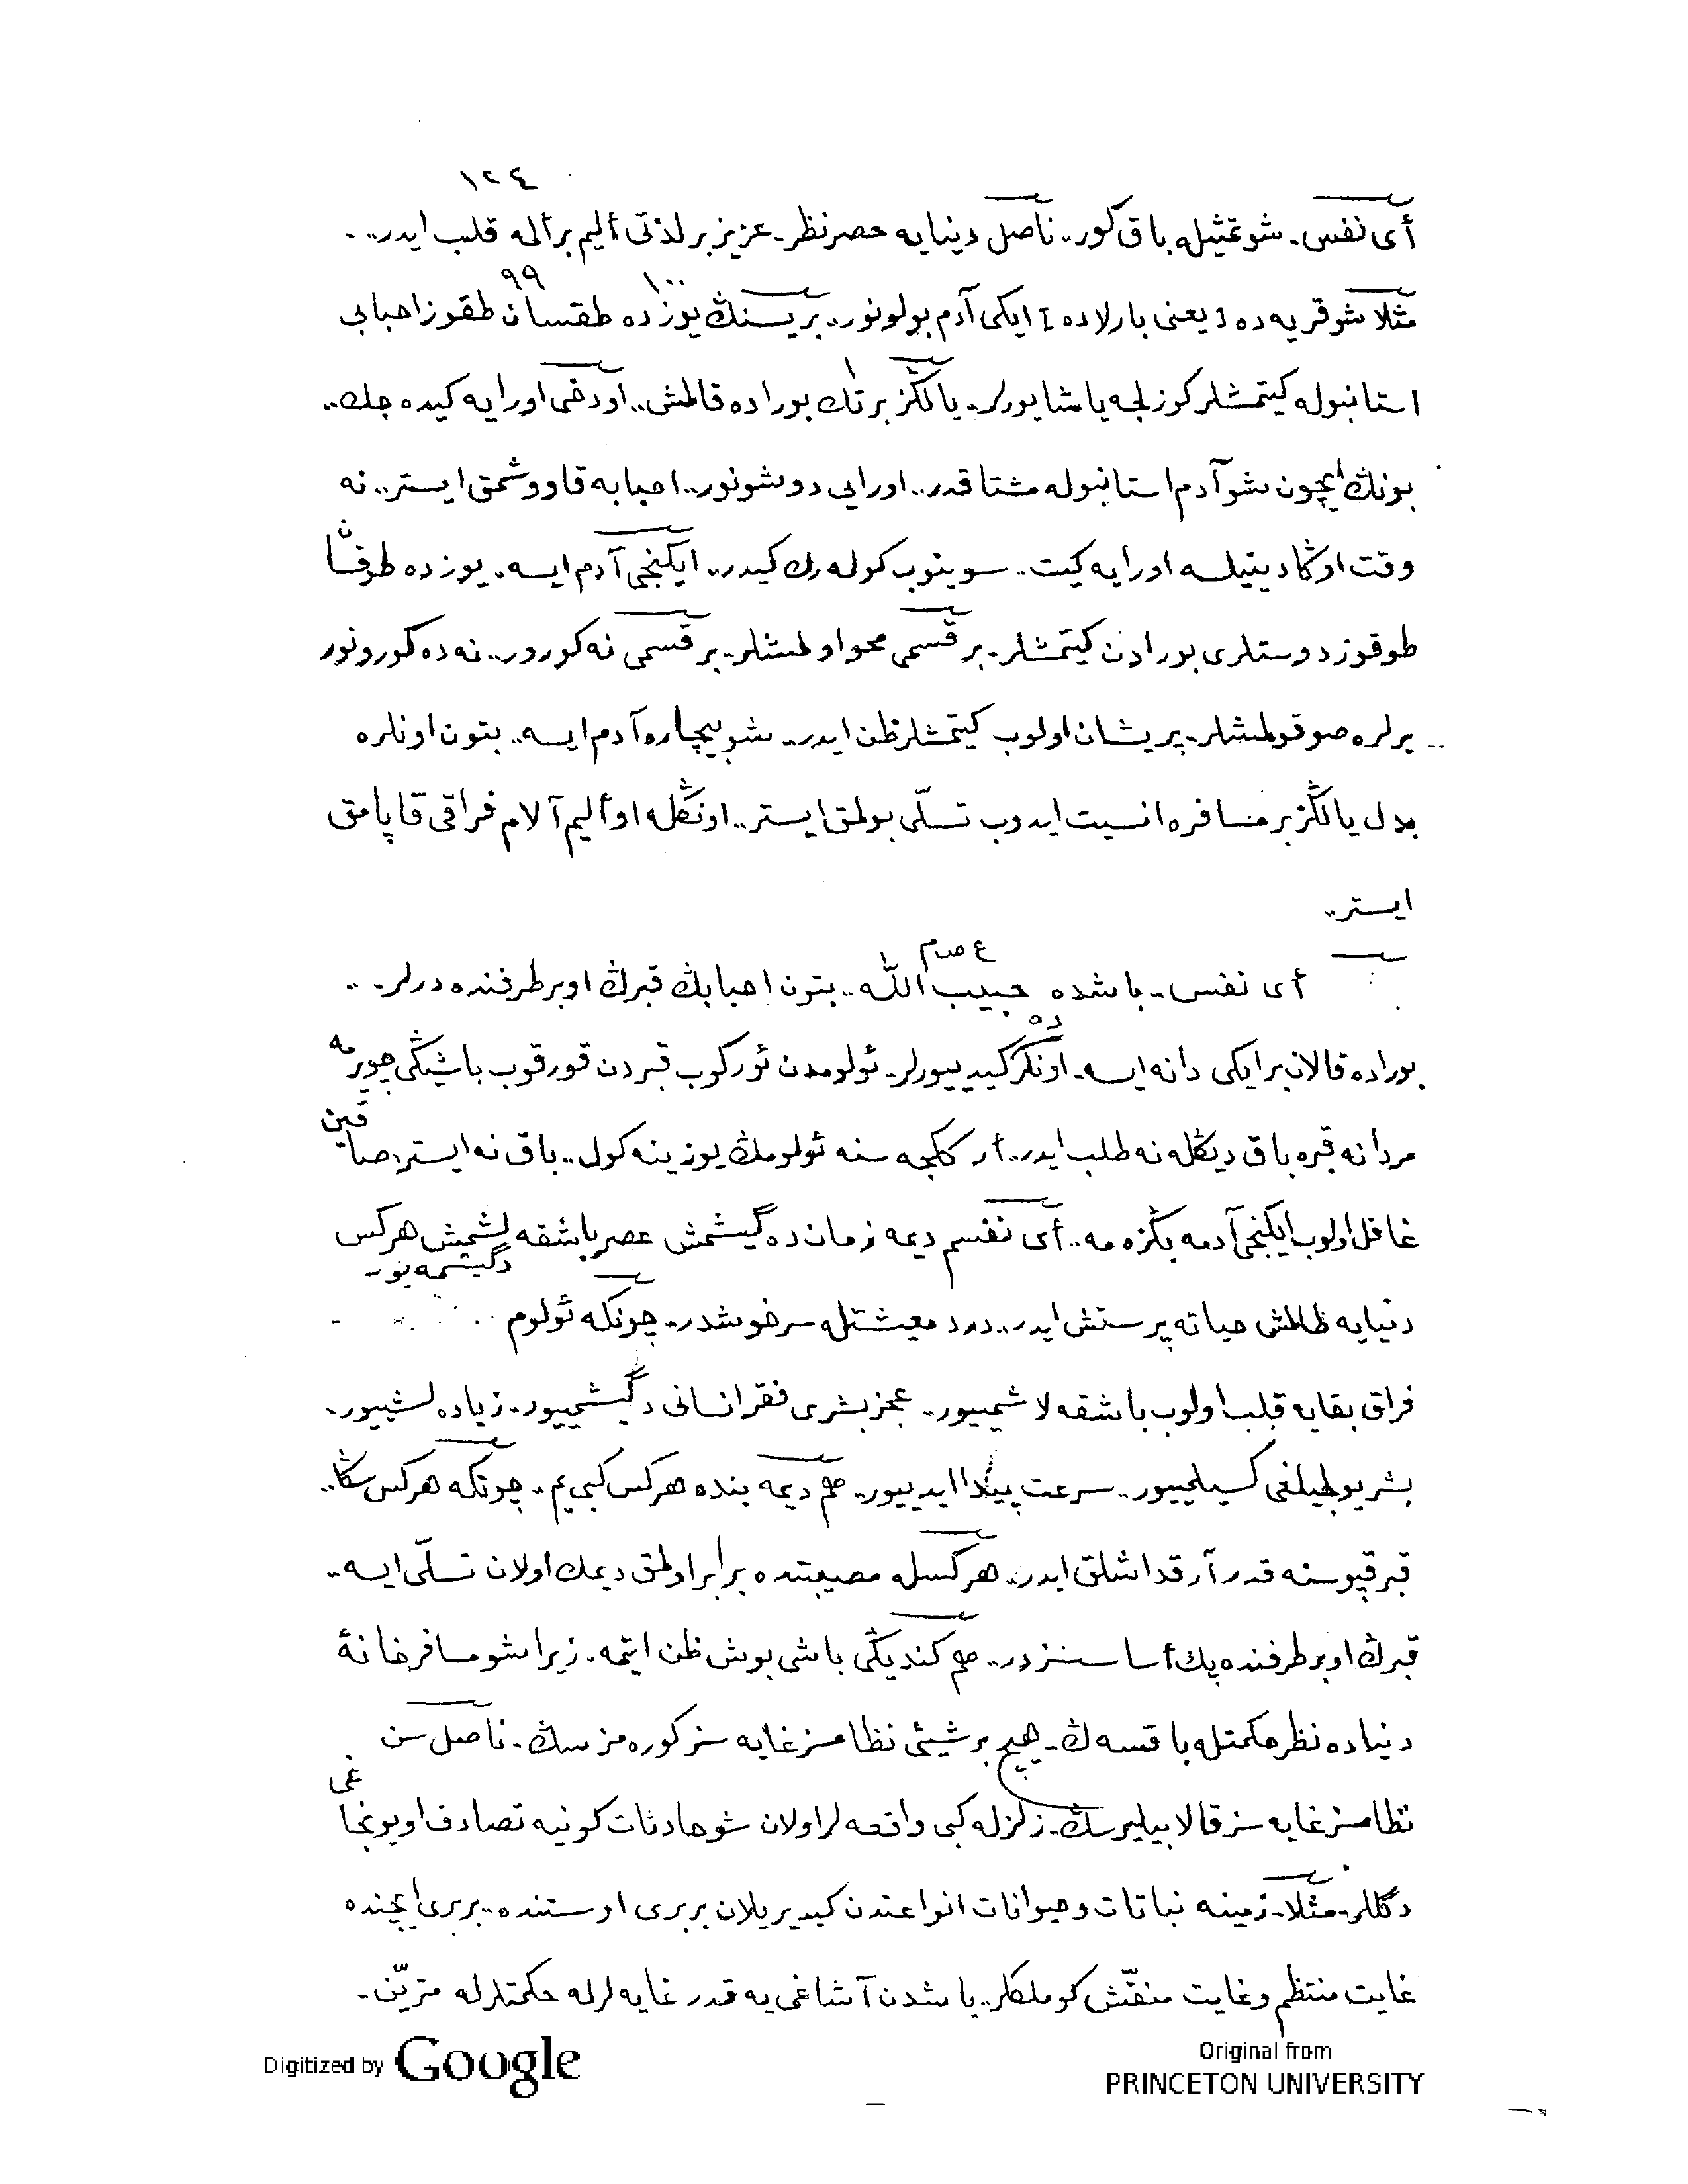 ١٢٤
أى نفس. شو تمثيله باق كور.. ناصل دينايه حصر نظر. عزيز بر لذتى أليم بر ألمه قلب ايدر..
٩٩ ١٠٠
مثلا شو قريه ده [يعنى بارلاده] ايكى آدم بولونور.. بريسنڭ يوزده طقسان طقوز احبابى
استانبوله كيتمشلر كوزلجه ياشايورلر.. يالڭز بر تك بوراده قالمش.. او دخى اورايه كيده جك..
بونڭ ايچون شو آدم استانبوله مشتاقدر.. اورايى دوشونور.. احبابه قاووشمق ايستر.. نه
وقت اوڭا دينيلسه اورايه كيت.. سوينوب كوله رك كيدر.. ايكنجى آدم ايسه.. يوزده طوقسان
طوقوز دوستلرى بورادن كيتمشلر. بر قسمى محو اولمشلر. بر قسمى نه كورور.. نه ده كورونور
يرلره صوقولمشلر. پريشان اولوب كيتمشلر ظن ايدر.. شو بيچاره آدم ايسه.. بتون اونلره
بدل يالڭز بر مسافره انسيت ايدوب تسلّى بولمق ايستر.. اونڭله او أليم آلام فراقى قاپامق
ايستر..
ع ص م
أى نفس.. باشده حبيب اللّه.. بتون احبابڭ قبرڭ اوبر طرفنده درلر..
بوراده قالان بر ايكى دانه ايسه. اونلرده كيدييورلر. ئولومدن ئوركوب قبردن قورقوب باشڭى چويرمه
مردانه قبره باق ديڭله نه طلب ايدر.. أر ككجه سنه ئولومڭ يوزينه كول.. باق نه ايستر. صاقين
غافل اولوب ايكنجى آدمه بڭزه مه.. أى نفسم ديمه زمان ده گيشمش عصر باشقه لشمش هركس
دنيايه طالمش حياته پرستش ايدر.. درد معيشتله سرخوشدر.. چونكه ئولوم دگيشمه يور
فراق بقايه قلب اولوب باشقه لاشمييور.. عجز بشرى فقر انسانى دگيشمييور. زياده لشييور.
بشر يولجيلغى كسيلمييور.. سرعت پيدا ايدييور.. هم ديمه بنده هركس كبى يم.. چونكه هركس سڭا..
قبر قپوسنه قدر آرقداشلق ايدر. هركسله مصيبتده برابر اولمق ديمك اولان تسلّى ايسه..
قبرڭ اوبر طرفنده پك أساسسزدر.. هم كنديڭى باشى بوش ظن ايتمه. زيرا شو مسافرخانهٔ
دنياده نظر حكمتله باقسه ڭ. هيچ بر شيئى نظامسز غايه سز كوره مزسڭ. ناصل سن
نظامسز غايه سز قالا بيليرسڭ. زلزله كبى واقعه لر اولان شو حادثات كونيه تصادف اويونجاغى
دگللر. مثلا. زمينه نباتات و حيوانات انواعندن كيديريلان بربرى اوستنده.. بربرى ايچنده
غايت منتظم و غايت منقّش كوملكلر.. باشدن آشاغى يه قدر غايه لرله حكمتلرله مزيّن.
Digitized by Google
Original from
PRINCETON UNIVERSITY